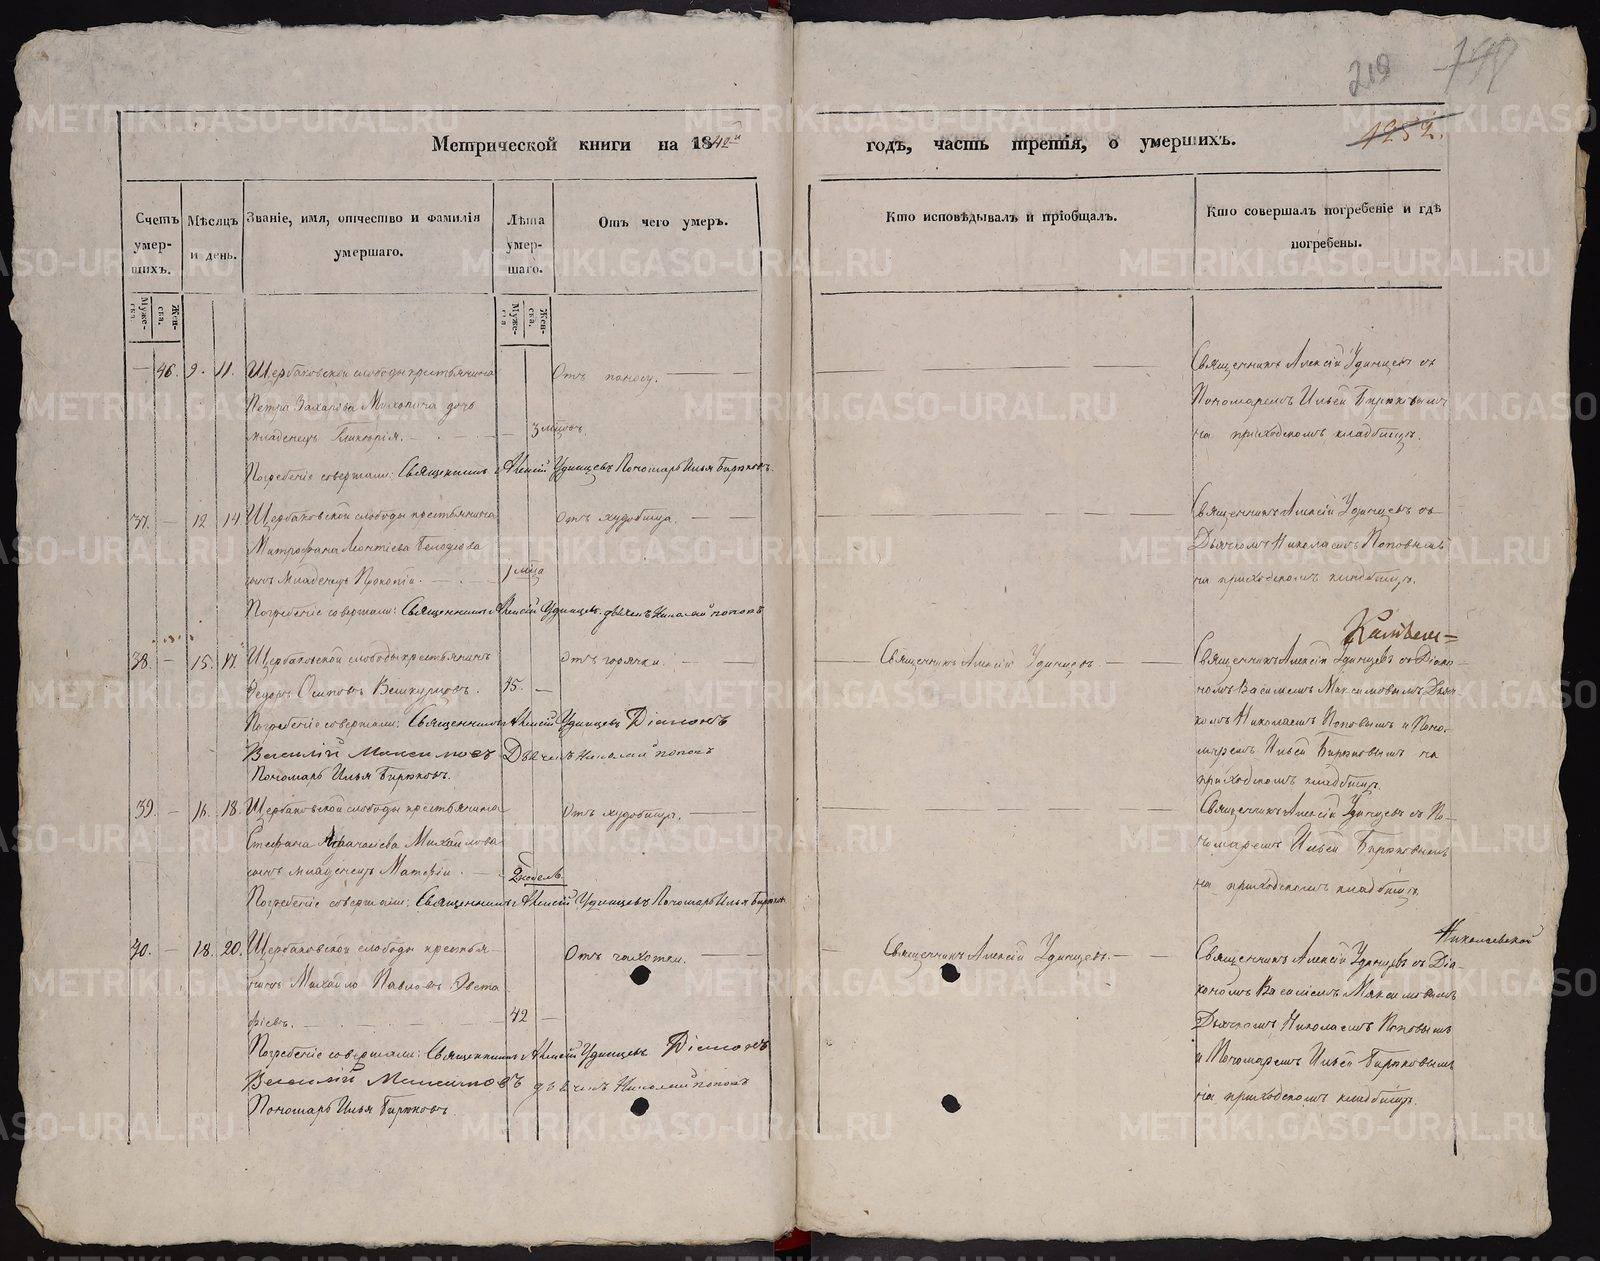 219
1252.
Метрической книги на 1842й
годъ, часть третія, о умершихъ.
Счетъ умер-шихъ.
Мѣсяцъ и день.
Званіе, имя, отчество и фамилія умершаго.
Лѣта умер-шаго.
Отъ чего умеръ.
Кто исповѣдывалъ и пріобщалъ.
Кто совершалъ погребеніе и гдѣ погребены.
Муже-ска.
Жен-ска.
Муже-ска
Жен-ска.
46. 9. 11. Щербаковской слободы крестьянина
Петра Захарова дочь
младенецъ Гликерія.
3 мцовъ.
Отъ поносу.
Священникъ Алексій Удинцевъ съ
Пономаремъ Ильей Бирюковымъ
на приходскомъ кладбищѣ.
Погребеніе совершали: Священникъ Алексій Удинцевъ Пономарь Илья Бирюковъ.
37. 12 14 Щербаковской слободы крестьянина
Митрофана Леонтіева
сынъ младенецъ Прокопій.
1 мца
Отъ худобища.
Священникъ Алексій Удинцевъ съ
Дьячкомъ Николаемъ Поповымъ
на приходскомъ кладбищѣ.
Погребеніе совершали: Священникъ Алексій Удинцевъ. дьячекъ Николай Поповъ
38. 15. 17. Щербаковской слободы крестьянинъ
Федоръ Осиповъ
45.
Отъ горячки.
Священникъ Алексій Удинцевъ.
Священникъ Алексій Удинцевъ съ Діако-
номъ Василіемъ Максимовымъ Дьяч-
комъ Николаемъ Поповымъ и Поно-
маремъ Ильей Бирюковымъ на
приходскомъ кладбищѣ.
Погребеніе совершали: Священникъ Алексій Удинцевъ Діаконъ
Василій Максимовъ Дьячекъ Николай Поповъ
Пономарь Илья Бирюковъ.
39. 16. 18. Щербаковской слободы крестьянина
Стефана Афанасіева Михайлова
сынъ младенецъ Матвѣй.
2 недель.
Отъ худобища.
Священникъ Алексій Удинцевъ съ По-
номаремъ Ильей Бирюковымъ
на приходскомъ кладбищѣ
Погребеніе совершали: Священникъ Алексій Удинцевъ Пономарь Илья Бирюковъ
40. 18. 20. Щербаковской слободы крестья-
нинъ Михайло Павловъ Евста
фіевъ.
42
Отъ чахотки.
Священникъ Алексій Удинцевъ.
Николаевской
Священникъ Алексій Удинцевъ съ Діа-
кономъ Василіемъ Максимовымъ
Дьячкомъ Николаемъ Поповымъ
и Пономаремъ Ильей Бирюковымъ
на приходскомъ кладбищѣ.
Погребеніе совершали: Священникъ Алексій Удинцевъ Діаконъ
Василій Максимовъ дьячекъ Николай Поповъ
Пономарь Илья Бирюковъ.
METRIKI.GASO-URAL.RU